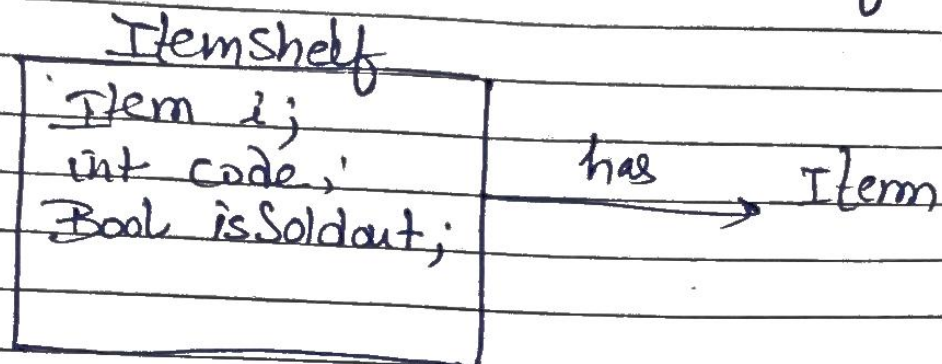 ItemShelf
Item i;
int code;
Bool isSoldout;
has
Item